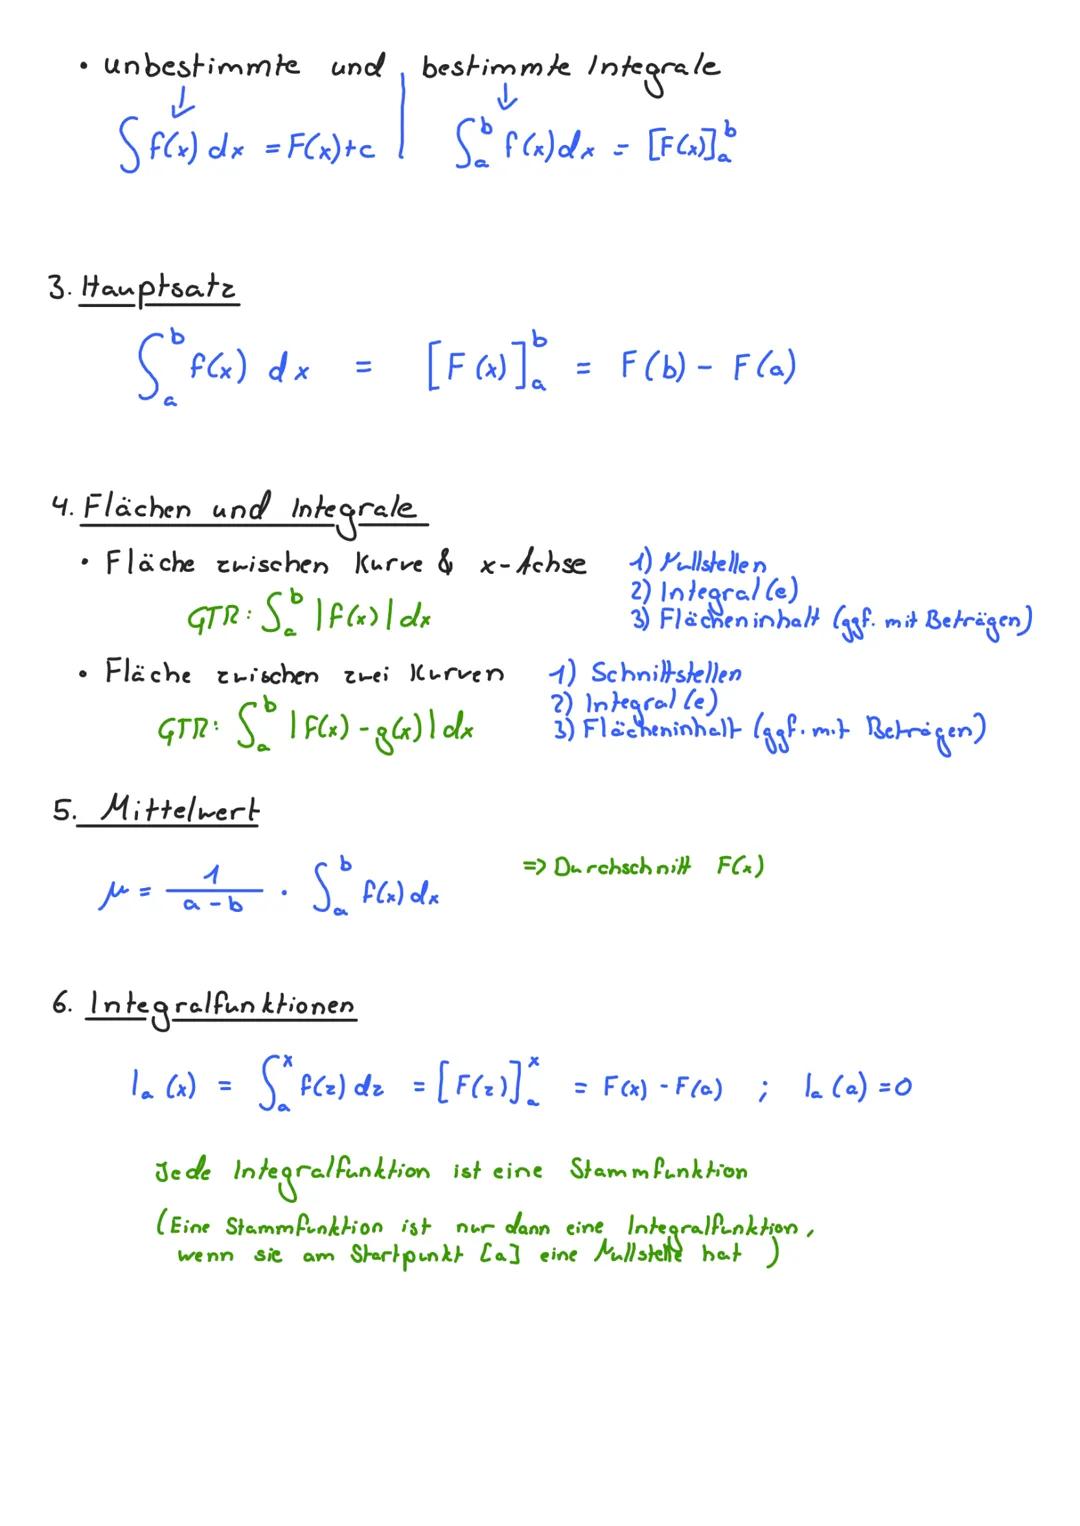 • unbestimmte und | bestimmte Integrale
↓ ↓
∫ f(x) dx = F(x)+c | ∫_a^b f(x) dx = [F(x)]_a^b
3. Hauptsatz
∫_a^b f(x) dx = [F(x)]_a^b = F(b) - F(a)
4. Flächen und Integrale
• Fläche zwischen Kurve & x-Achse
1) Nullstellen
2) Integral(e)
3) Flächeninhalt (ggf. mit Beträgen)
GTR: ∫_a^b |f(x)| dx
• Fläche zwischen zwei Kurven
1) Schnittstellen
2) Integral(e)
3) Flächeninhalt (ggf. mit Beträgen)
GTR: ∫_a^b |f(x) - g(x)| dx
5. Mittelwert
μ = 1/(a - b) · ∫_a^b f(x) dx => Durchschnitt F(x)
6. Integralfunktionen
I_a (x) = ∫_a^x f(z) dz = [F(z)]_a^x = F(x) - F(a) ; I_a (a) = 0
Jede Integralfunktion ist eine Stammfunktion
(Eine Stammfunktion ist nur dann eine Integralfunktion,
wenn sie am Startpunkt [a] eine Nullstelle hat )